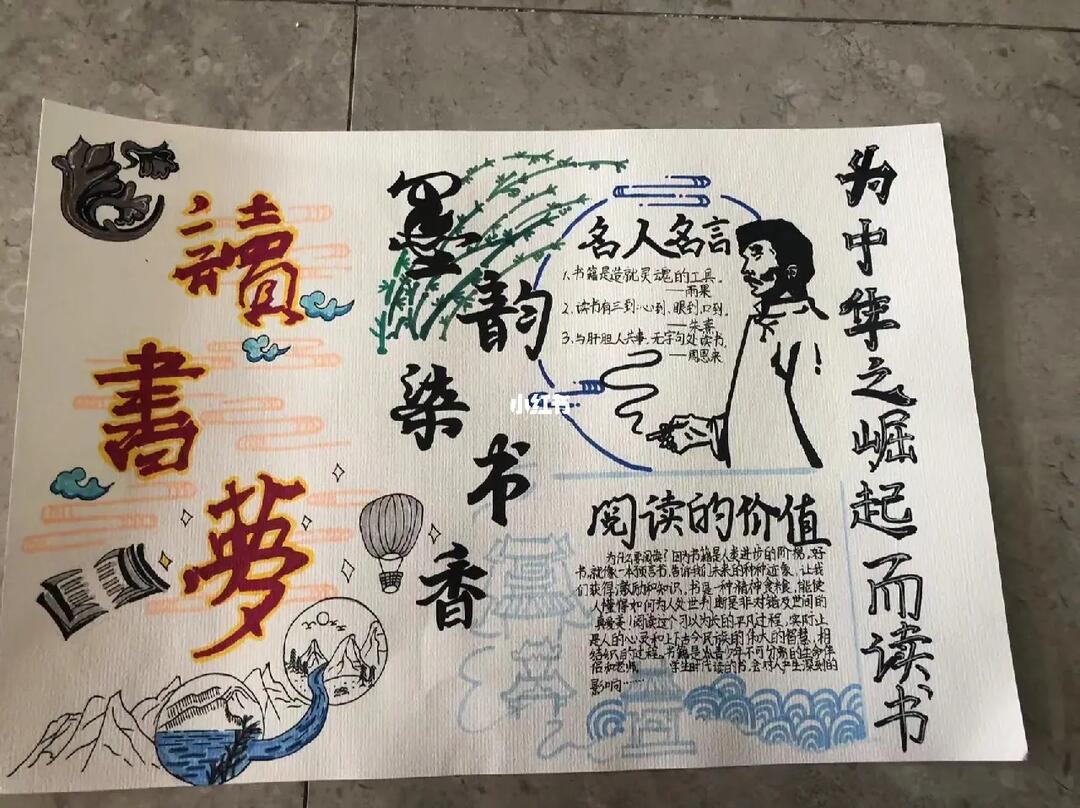 讀書夢
墨韵染书香
名人名言
1.书籍是造就灵魂的工具。
——雨果
2.读书有三到:心到、眼到、口到。
——朱熹
3.与肝胆人共事,无字句处读书.
——周恩来
小红书
阅读的价值
为什么要阅读?因为书籍是人类进步的阶梯。好
书,就像一本预言书,告诉我们未来的种种迹象,让我
们获得激励和知识。书是一种精神食粮,能使
人懂得如何为人处世,判断是非对错及世间的
真爱美!阅读这个习以为长的平凡过程,实际上
是人的心灵和上下古今民族的伟大的智慧,相
结识的过程。书籍是青少年不可分离的生命伴
侣和老师。学生时代读的书,会对人产生深刻的
影响……
为中华之崛起而读书